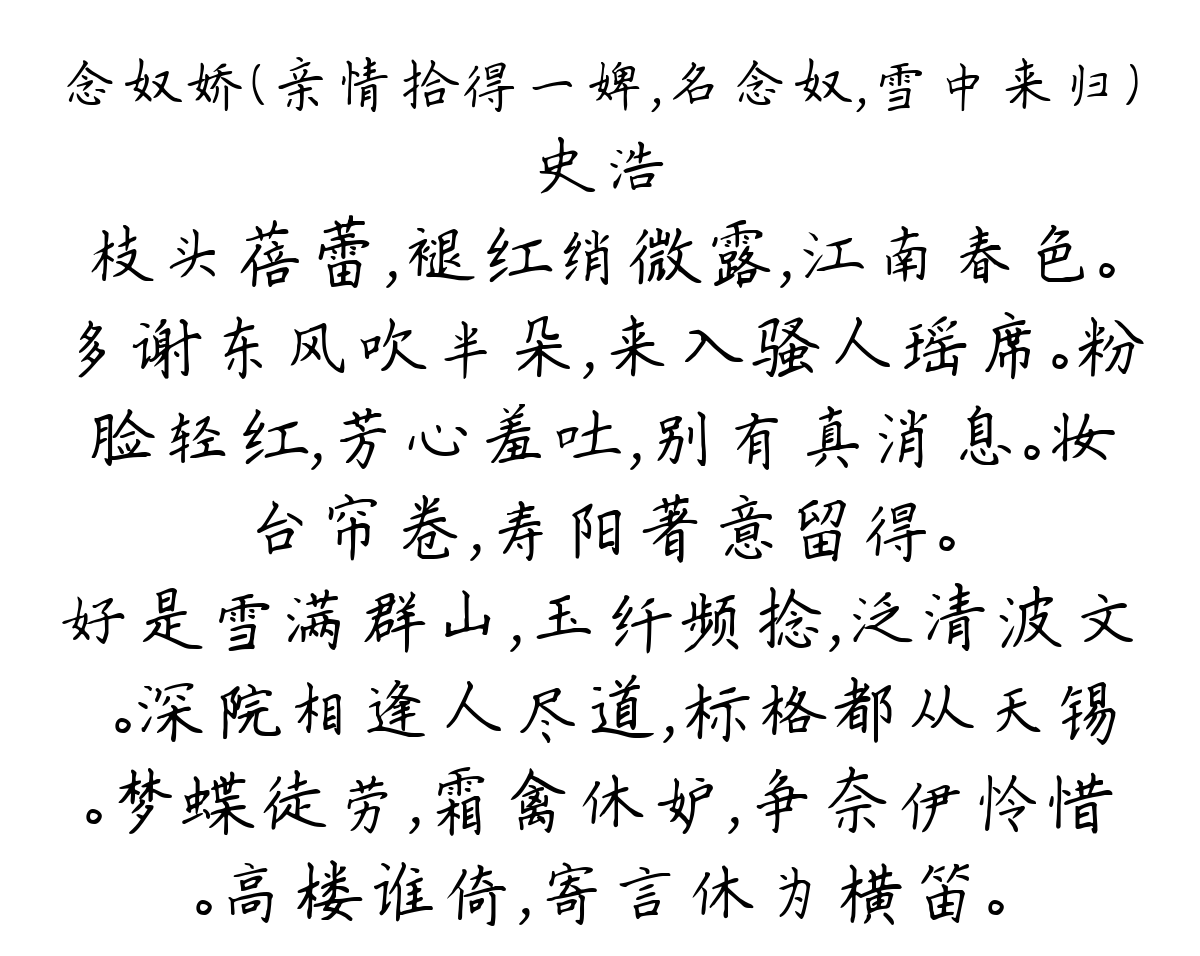 念奴娇(亲情拾得一婢,名念奴,雪中来归)
史浩
枝头蓓蕾,褪红绡微露,江南春色。
多谢东风吹半朵,来入骚人瑶席。粉
脸轻红,芳心羞吐,别有真消息。妆
台帘卷,寿阳著意留得。
好是雪满群山,玉纤频捻,泛清波文
。深院相逢人尽道,标格都从天锡
。梦蝶徒劳,霜禽休妒,争奈伊怜惜
。高楼谁倚,寄言休为横笛。